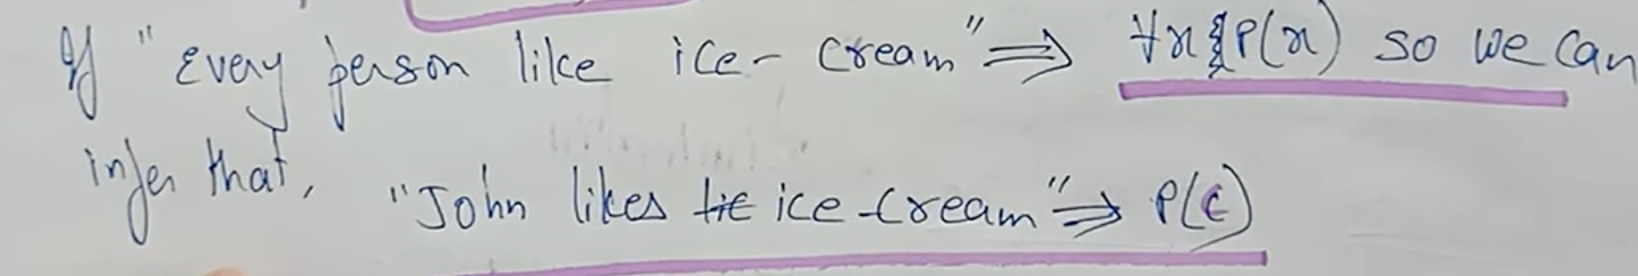 If "Every person like ice-cream" ⇒ ∀x P(x) so we can
infer that, "John likes ice-cream" ⇒ P(c)